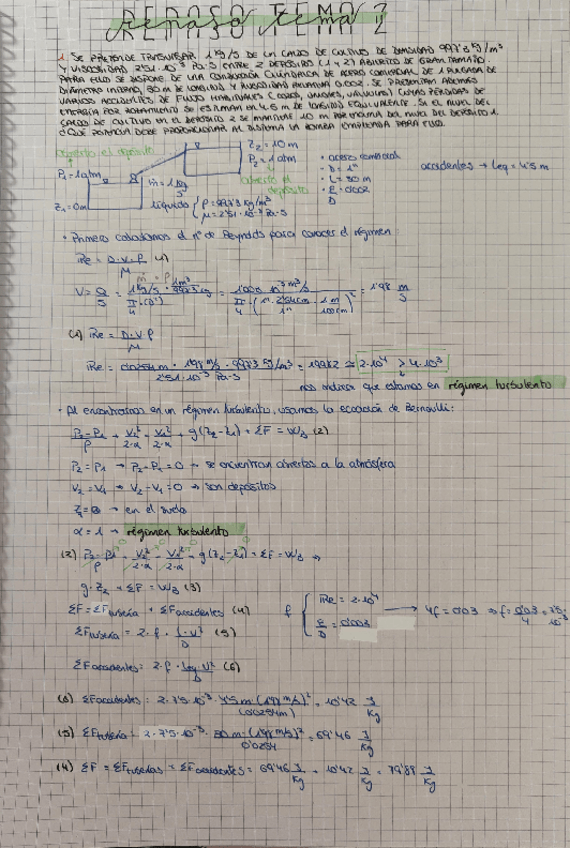 REPASO TEMA 2
repaso tema 2
1 SE PRETENDE TRASVASAR 1 kg/s DE UN CALDO DE CULTIVO DE DENSIDAD 997'3 kg/m³
Y VISCOSIDAD 2'51·10⁻³ Pa·s ENTRE 2 DEPÓSITOS (1 y 2) ABIERTOS DE GRAN TAMAÑO.
PARA ELLO SE DISPONE DE UNA CONDUCCIÓN CILÍNDRICA DE ACERO COMERCIAL DE 1 PULGADA DE
DIÁMETRO INTERNO, 30 m DE LONGITUD Y RUGOSIDAD RELATIVA 0.002. SE PRESENTAN ADEMÁS
VARIOS ACCIDENTES DE FLUJO HABITUALES (CODOS, UNIONES, VÁLVULAS) CUYAS PÉRDIDAS DE
ENERGÍA POR ROZAMIENTO SE ESTIMAN EN 4.5 m DE LONGITUD EQUIVALENTE. SI EL NIVEL DEL
CALDO DE CULTIVO EN EL DEPÓSITO 2 SE MANTIENE 10 m POR ENCIMA DEL NIVEL DEL DEPÓSITO 1
¿QUÉ POTENCIA DEBE PROPORCIONAR AL SISTEMA LA BOMBA EMPLEADA PARA ELLO?
abierto el depósito
P₁=1atm
Z₁=0m
Z₂=10m
P₂=1atm
abierto el depósito
ṁ=1 kg/s
líquido { ρ=997'3 kg/m³
μ=2'51·10⁻³ Pa·s
· acero comercial
- D=1"
- L=30m
- ε/D=0'002
accidentes → Leq=4'5m
· Primero calculamos el nº de Reynolds para conocer el régimen:
Re = D·v·ρ/μ (1)
V = Q/S = 1 kg/s · 1m³/997'3 kg / π/4·(D²) = 1'003·10⁻³ m³/s / π/4·(1"·2'54cm/1"·1m/100cm)² = 1'98 m/s
(1) Re = D·v·ρ/μ
Re = 0'0254m · 1'98 m/s · 997'3 kg/m³ / 2'51·10⁻³ Pa·s = 19982 ≅ 2·10⁴ > 4·10³
nos indica que estamos en régimen turbulento
· Al encontrarnos en un régimen turbulento, usamos la ecuación de Bernoulli:
P₂-P₁/ρ + V₂²/2·α - V₁²/2·α + g(Z₂-Z₁) + ΣF = WB (2)
P₂=P₁ → P₂-P₁=0 → se encuentran abiertos a la atmósfera
V₂=V₁ → V₂-V₁=0 → son depósitos
Z₁=0 → en el suelo
α=1 → régimen turbulento
(2) P₂-P₁/ρ + V₂²/2·α - V₁²/2·α + g(Z₂-Z₁) + ΣF = WB ⇒
g·Z₂ + ΣF = WB (3)
ΣF = ΣFtubería + ΣFaccidentes (4)
f { Re=2·10⁴
ε/D=0'002
→ 4f=0'03 ⇒ f=0'03/4=7'5·10⁻³
ΣFtubería = 2·f·L·v²/D (5)
ΣFaccidentes = 2·f·Leq·v²/D (6)
(6) ΣFaccidentes = 2·7'5·10⁻³·4'5m·(1'98 m/s)²/(0'0254m) = 10'42 J/kg
(5) ΣFtubería = 2·7'5·10⁻³·30m·(1'98 m/s)²/0'0254 = 69'46 J/kg
(4) ΣF = ΣFtuberías + ΣFaccidentes = 69'46 J/kg + 10'42 J/kg = 79'88 J/kg